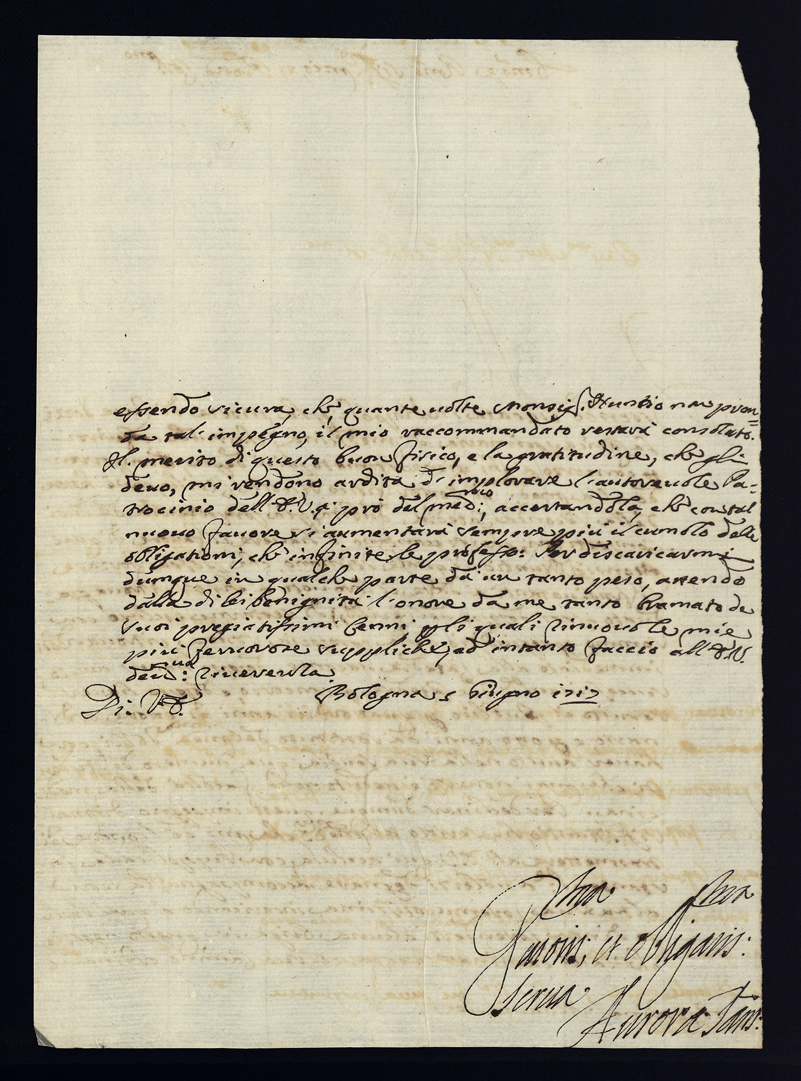 essendo sicura, che, quante volte Monsig.r Nuntio non pren=
da tal' impegno, il mio raccommandato restarà consolato.
Il merito di questo buon fisico, e la gratitudine, che gli
devo, mi rendono ardita d'implorare l'autorevole Pa-
trocinio dell' V.S. a prò del med.mo, accertandola, che con tal
nuovo favore si aumentarà sempre più il cumolo delle
obligationi, che infinite le professo: Per discaricarmi
dunque in qualche parte da un tanto peso, attendo
dalla di lei benignità l'onore da me tanto bramato de
suoi pregiatissimi Cenni p gli quali rinnuovo le mie
più fervorose suppliche, ed intanto faccio all' V.
dev.ma riverenza
Di V. Bologna 5 Giugno 1717
et obligatis:
serva
Aurora San: